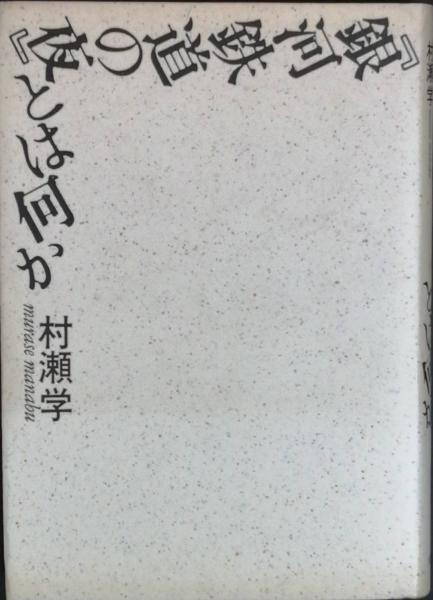 『銀河鉄道の夜』とは何か
村瀬学
murase manabu
村瀬学